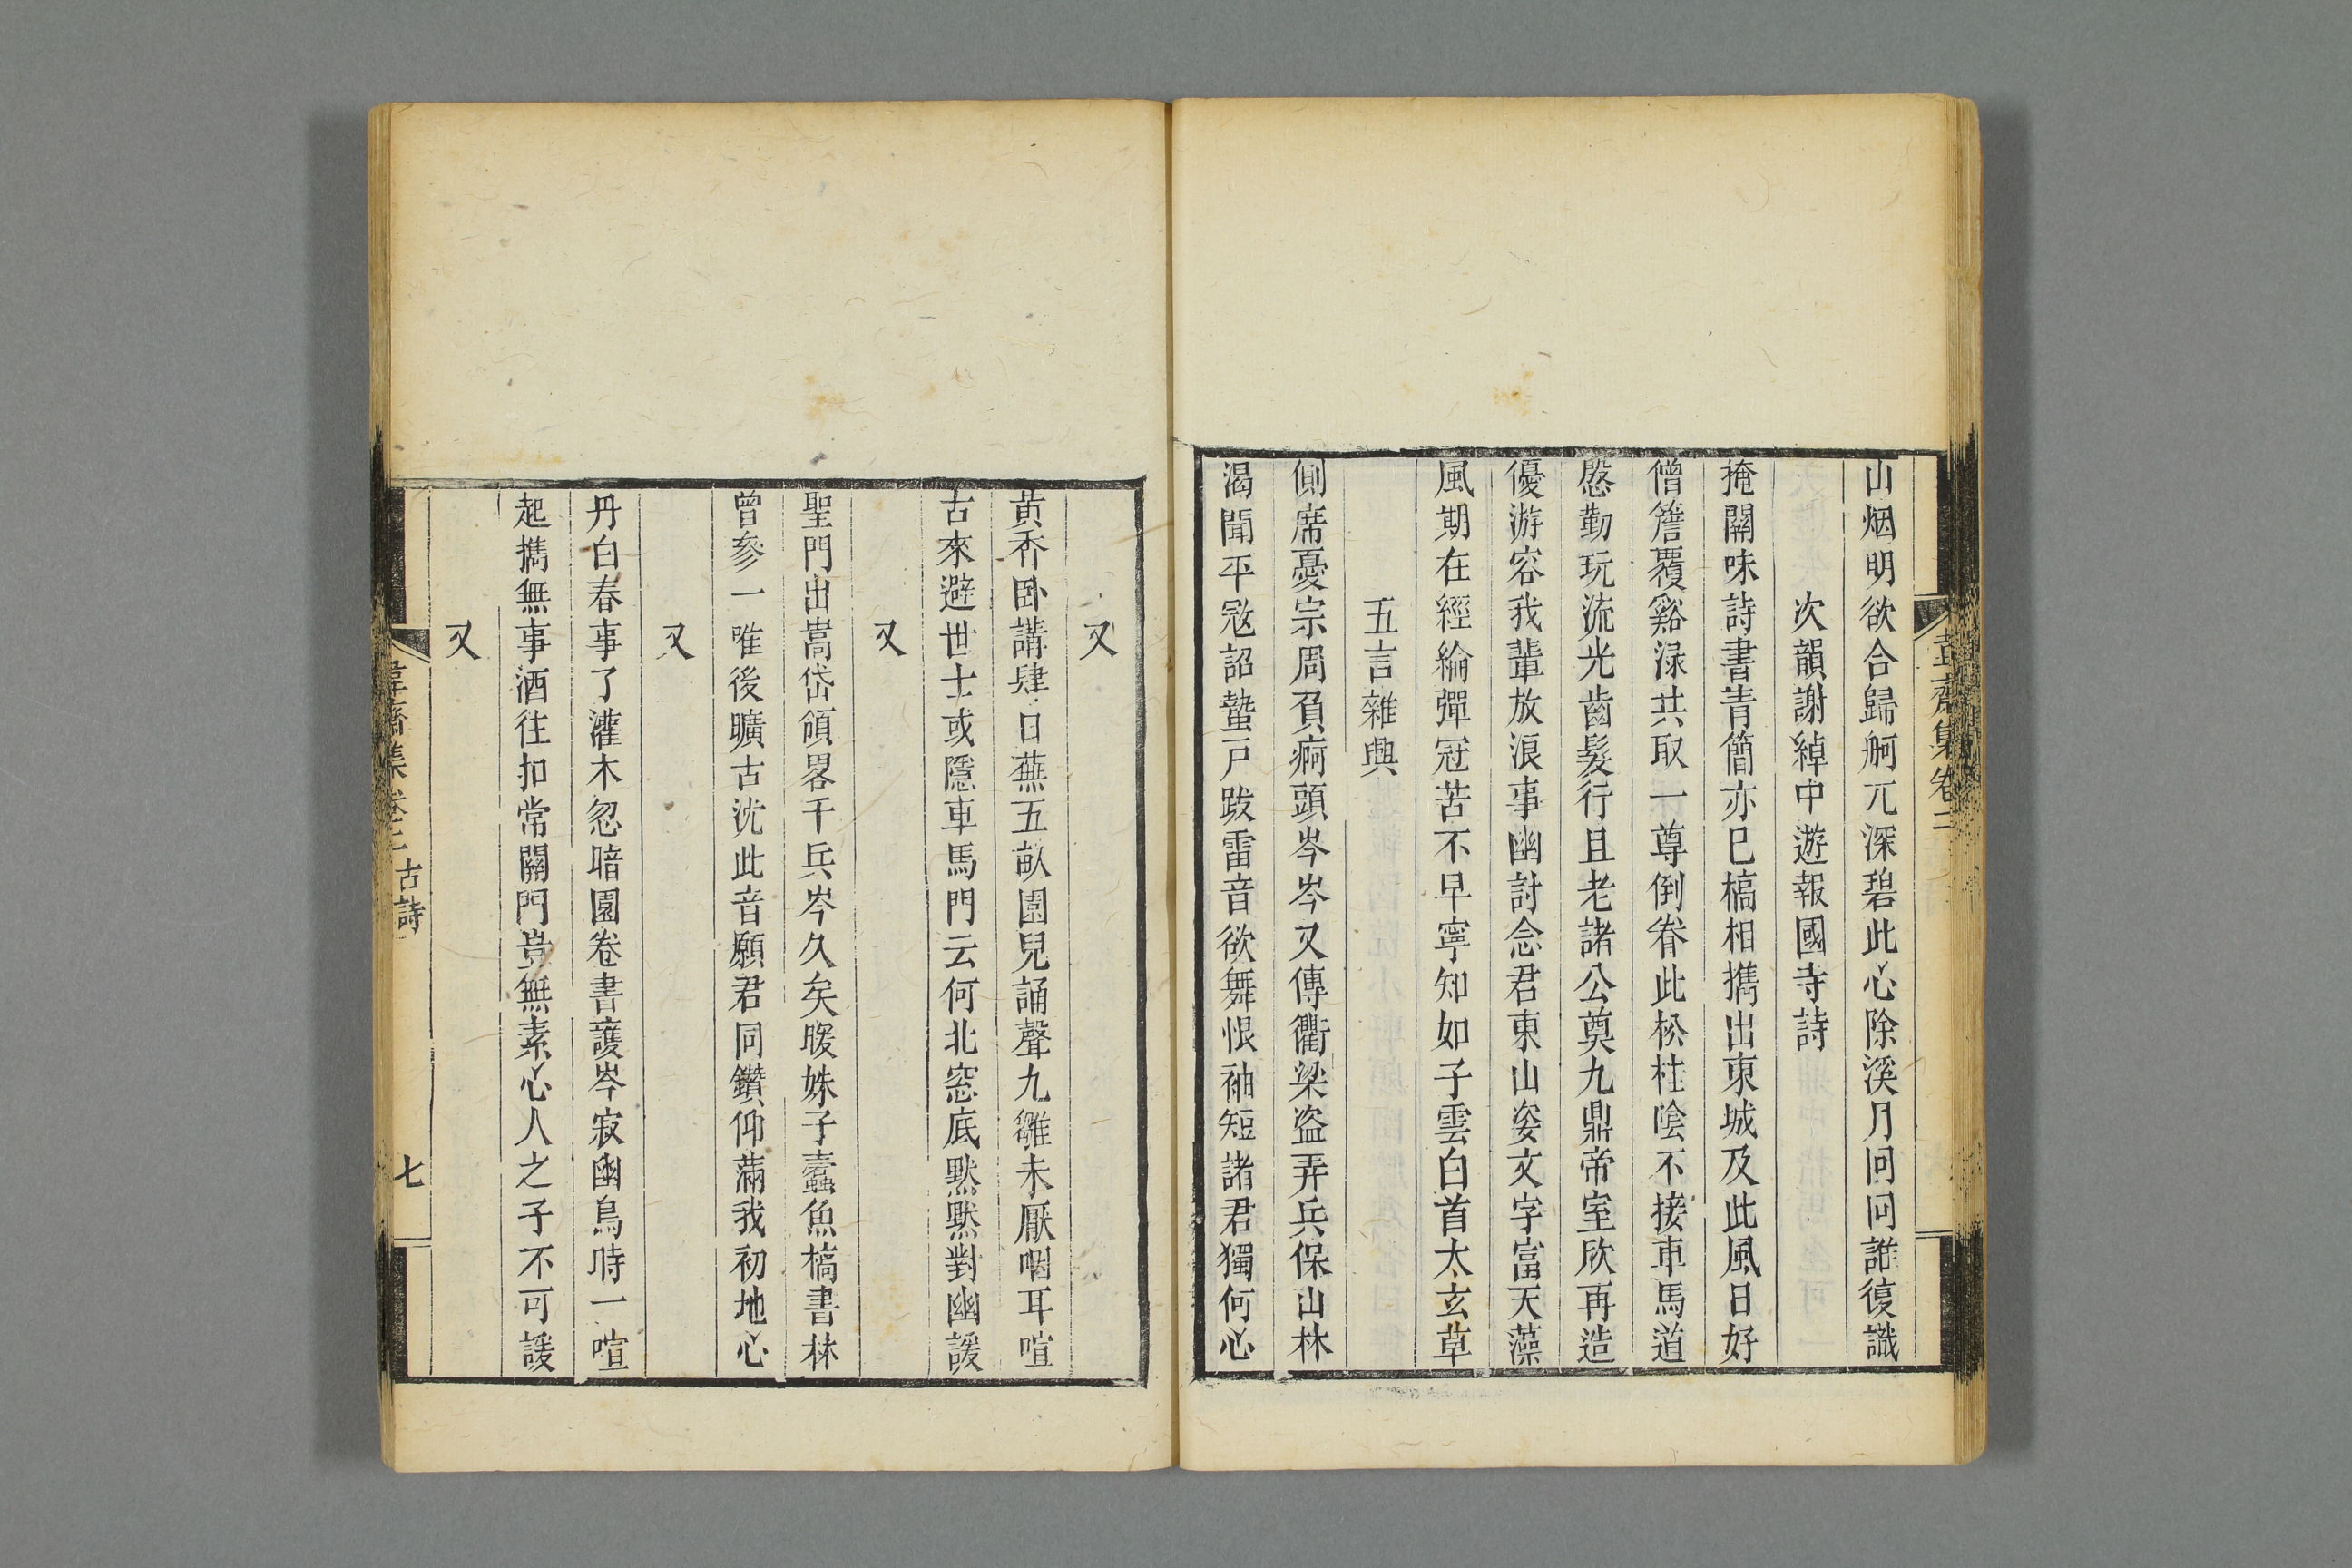 山烟明欲合歸舸兀深碧此心除溪月囘囘誰復識
次韻謝綽中遊報國寺詩
掩關味詩書青簡亦巳槁相携出東城及此風日好
僧簷覆谿渌共取一尊倒眷此松桂陰不接車馬道
慇勤玩流光齒髮行且老諸公奠九鼎帝室欣再造
優游容我輩放浪事幽討念君東山姿文字富天藻
風期在經綸彈冠苦不早寧知如子雲白首太玄草
五言雜興
側席憂宗周負痾頭岑岑又傳衢梁盗弄兵保山林
渴聞平寇詔蟄戸跋雷音欲舞恨袖短諸君獨何心
韋齋集卷二
又
黄夼卧講肆日蕪五畝園兒誦聲九雛未厭咽耳喧
古來避世士或隱車馬門云何北窓底默默對幽諼
又
聖門出嵩岱頒畧千兵岑久矣暖姝子蠹魚槁書林
曾參一唯後曠古沈此音願君同鑽仰蒲我初地心
又
丹白春事了灌木忽暗園卷書護岑寂幽鳥時一喧
起携無事酒往扣常關門豈無素心人之子不可諼
又
韋齋集卷二 古詩 七